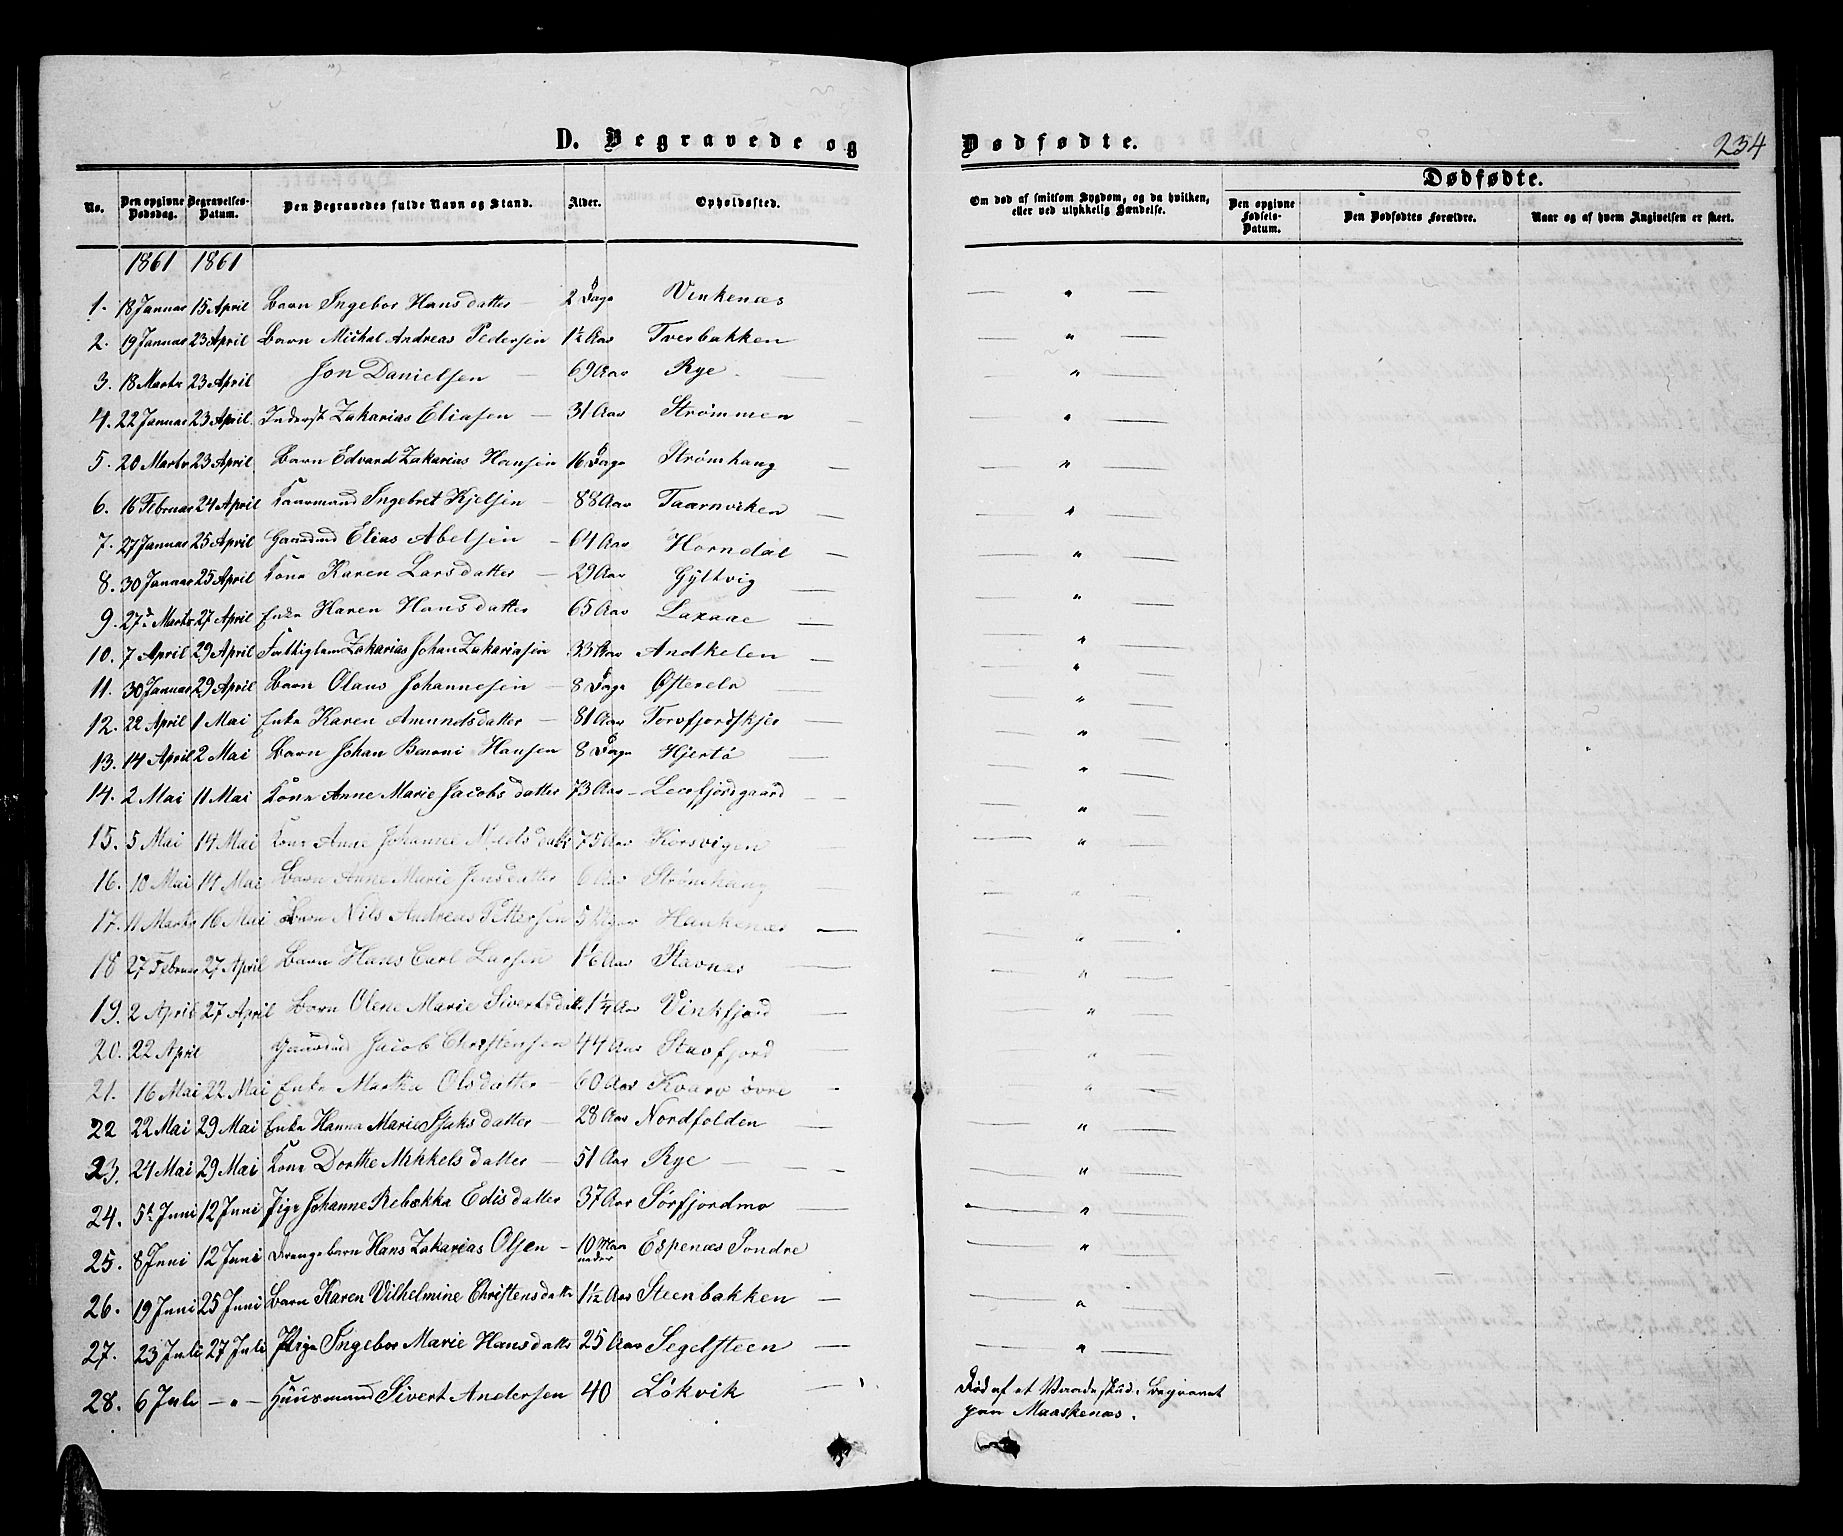 D. Begravede og Dødfødte.
234
No. Den opgivne Dødsdag. Begravelses-Datum. Den Begravedes fulde Navn og Stand. Alder. Opholdssted. Om død af smitsom Sygdom, og da hvilken, eller ved ulykkelig Hændelse. Dødfødte. Den opgivne Fødsels-Datum. Den Dødfødtes Forældre. Naar og af hvem Angivelsen er skeet.
1861 1861
1. 18 Januar 15 April Barn Ingebor Hansdatter — 2 Dage Vinkenæs — " —
2. 19 Januar 23 April Barn Michal Andreas Pedersen 1½ Aar Tverbakken — " —
3. 18 Marts 23 April Jon Danielsen — 69 Aar Rye — " —
4. 22 Januar 23 April Inderst Zakarias Eliasen — 31 Aar Strømmen — " —
5. 20 Marts 23 April Barn Edvard Zakarias Hansen 16 Dage Strømhaug — " —
6. 16 Februar 24 April Kaarmand Ingebret Kjelsen — 88 Aar Taarnviken — " —
7. 27 Januar 25 April Gaardmd Elias Abelsen — 64 Aar Horndal — " —
8. 30 Januar 25 April Kone Karen Larsdatter — 29 Aar Gyltvig — " —
9. 27de Marts 27 April Enke Karen Hansdatter 65 Aar Laxaae — " —
10. 7 April 29 April Fattiglem Zakarias Johan Zakariasen 33 Aar Andkelen — " —
11. 30 Januar 29 April Barn Olaus Johannesen — 8 Dage Østerelv — " —
12. 22 April 1 Mai Enke Karen Amundsdatter — 81 Aar Torvfjordskjer — " —
13. 14 April 2 Mai Barn Johan Benoni Hansen 8 Dage Hjertø — " —
14. 2 Mai 11 Mai Kone Anne Marie Jacobsdatter 73 Aar — Leerfjordgaard — " —
15. 5 Mai 14 Mai Kone Anne Johanne Nielsdatt 75 Aar Korsvigen — " —
16. 10 Mai 14 Mai Barn Anne Marie Jensdatter 6 Aar Strømhaug — " —
17. 11 Marts 16 Mai Barn Nils Andreas Pettersen 5 Uger Haukenæs — " —
18 27 Februar 27 April Barn Hans Carl Larsen 1 1/6 Aar Stavnæs — " —
19. 2 April 27 April Barn Olene Marie Sivertsdatt 1¼ Aar Vinkfjord — " —
20. 22 April Gaardmd Jacob Christensen 44 Aar Stavfjord — " —
21. 16 Mai 22 Mai Enke Martha Olsdatter — 60 Aar Kvarv øvre — " —
22 22 Mai 29 Mai Enke Hanna Marie Isaksdatter — 28 Aar Nordfolden — " —
23. 24 Mai 29 Mai Kone Dorthe Mikkelsdatter — 51 Aar Rye — " —
24. 5te Juni 12 Juni Pige Johanne Rebekka Edisdatter 37 Aar Sørfjordmo — " —
25. 8 Juni 12 Juni Drengebarn Hans Zakarias Olsen — 10 Maaneder Espenæs Søndre — " —
26. 19 Juni 25 Juni Barn Karen Vilhelmine Christensdatte 1 1/12 Aar Steenbakken — " —
27. 23 Juli 27 Juli Pige Ingebor Marie Hansdatte 25 Aar Segelsteen — " —
28. 6 Juli — " — Huusmand Sivert Andersen 40 Løkvik — Død af et Vaadeskud. Begravet
paa Maaskenæs.